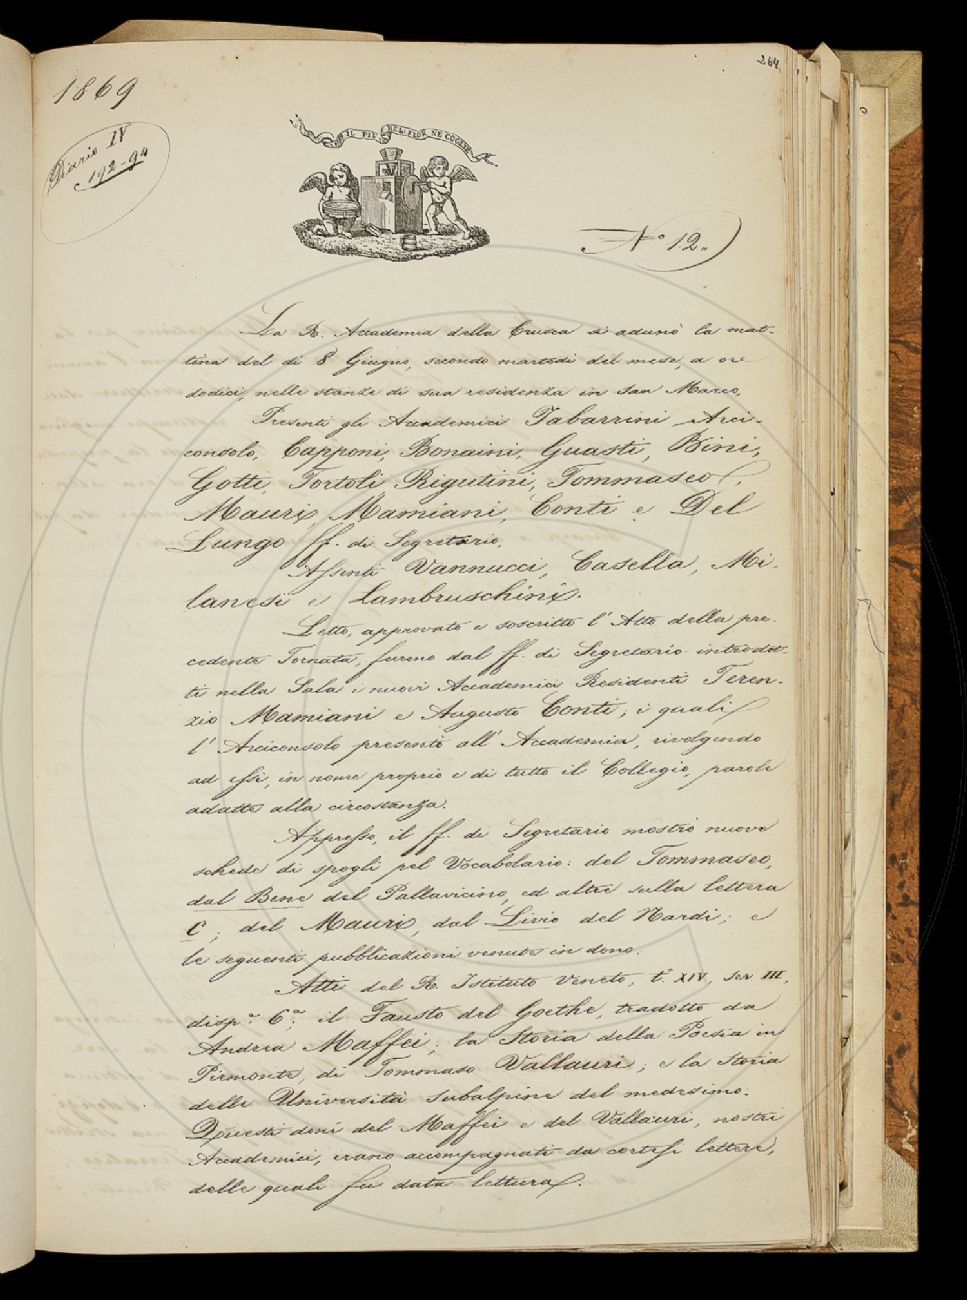 264
1869
Diario IV
192-94
IL PIÙ BEL FIOR NE COGLIE
N.° 12.
La R. Accademia della Crusca si adunò la mat-
tina del dì 8 Giugno, secondo martedì del mese, a ore
dodici, nelle stanze di sua residenza in San Marco.
Presenti gli Accademici Tabarrini Arci-
consolo, Capponi, Bonaini, Guasti, Bini,
Gotti, Tortoli Rigutini, Tommaseo,
Mauri, Mamiani, Conti e Del
Lungo ff. di Segretario.
Assenti Vannucci, Casella, Mi-
lanesi e Lambruschini.
Letto, approvato e soscritto l'Atto della pre-
cedente Tornata, furono dal ff. di Segretario introdot-
ti nella Sala i nuovi Accademici Residenti Teren-
zio Mamiani e Augusto Conti; i quali
l'Arciconsolo presentò all'Accademia, rivolgendo
ad essi, in nome proprio e di tutto il Collegio, parole
adatte alla circostanza.
Appresso, il ff. di Segretario mostrò nuove
schede di spogli pel Vocabolario: del Tommaseo,
dal Bene del Pallavicino, ed altre sulla lettera
C; del Mauri, dal Livio del Nardi; e
le seguenti pubblicazioni venute in dono.
Atti del R. Istituto Veneto, t.° XIV, ser III,
disp.a 6.a; il Fausto del Goethe, tradotto da
Andrea Maffei; la Storia della Poesia in
Piemonte, di Tommaso Vallauri; e la Storia
delle Università subalpine del medesimo.
Questi doni del Maffei e del Vallauri, nostri
Accademici, erano accompagnati da cortesi lettere,
delle quali fu data lettura.